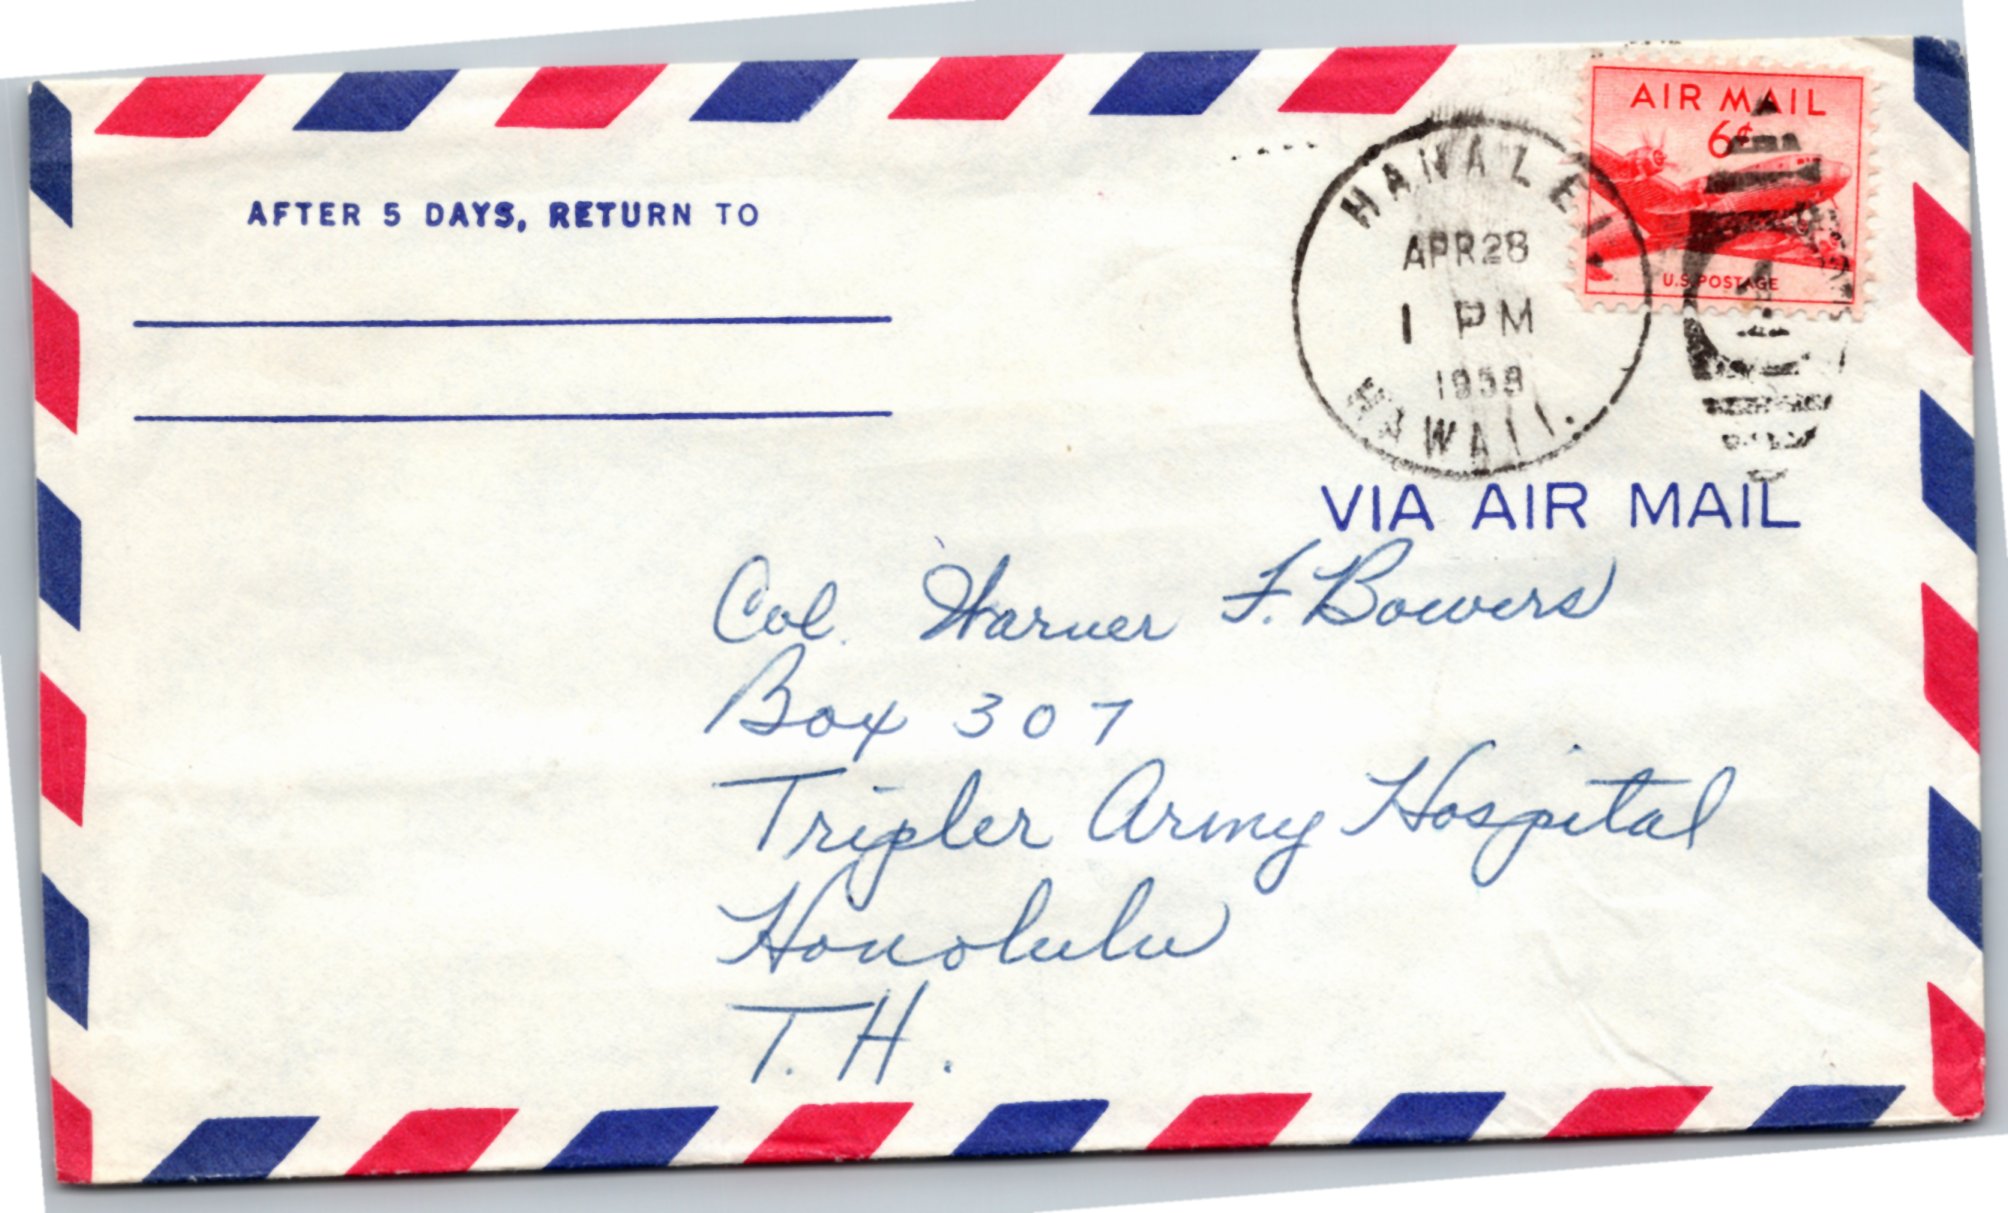 AFTER 5 DAYS, RETURN TO
HANALEI
APR 28
1 PM
1958
HAWAII.
AIR MAIL
6¢
U.S. POSTAGE
VIA AIR MAIL
Col. Warner F. Bowers
Box 307
Tripler Army Hospital
Honolulu
T. H.